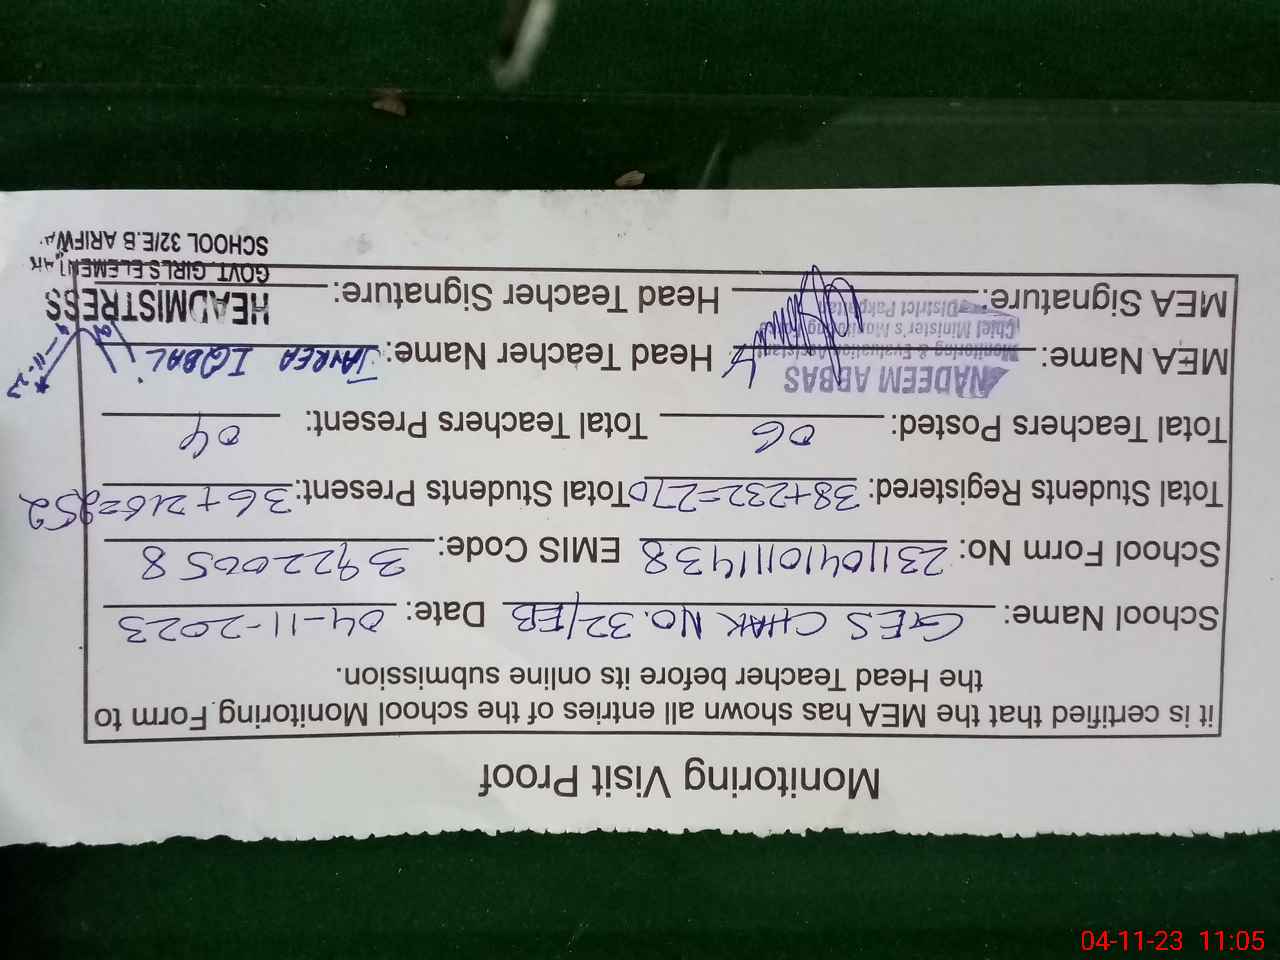 Monitoring Visit Proof
it is certified that the MEA has shown all entries of the school Monitoring Form to
the Head Teacher before its online submission.
School Name: GES CHAK NO. 32/EB Date: 04-11-2023
School Form No: 231104101111438 EMIS Code: 39220058
Total Students Registered: 38+232=270 Total Students Present: 36+216=252
Total Teachers Posted: 06 Total Teachers Present: 04
MEA Name: NADEEM ABBAS Head Teacher Name: IQBAL
Monitoring & Evaluation Assistant
Chief Minister's Monitoring
District Pakpattan
MEA Signature: Head Teacher Signature: HEADMISTRESS
GOVT. GIRLS ELEMENTARY
SCHOOL 32/E.B ARIFWA
04-11-23 11:05